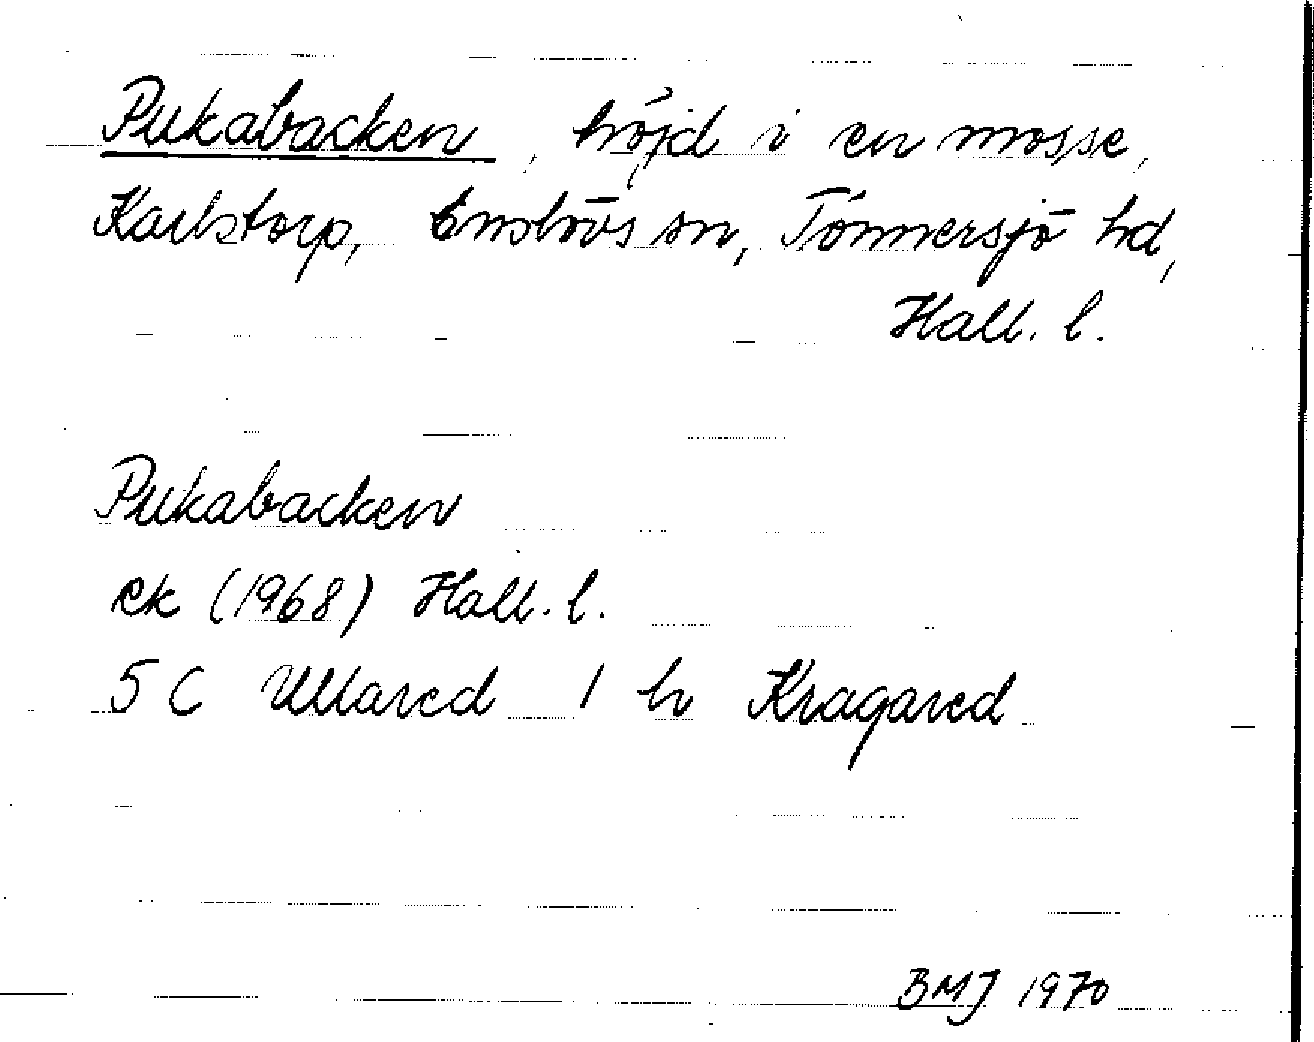 Pukabacken, höjd i en mosse,
Karlstorp, Enslövs sn, Tönnersjö hd,
Hall. l.
Pukabacken
ek (1968) Hall. l.
5C Ullared 1 h Kragared
BMJ 1970